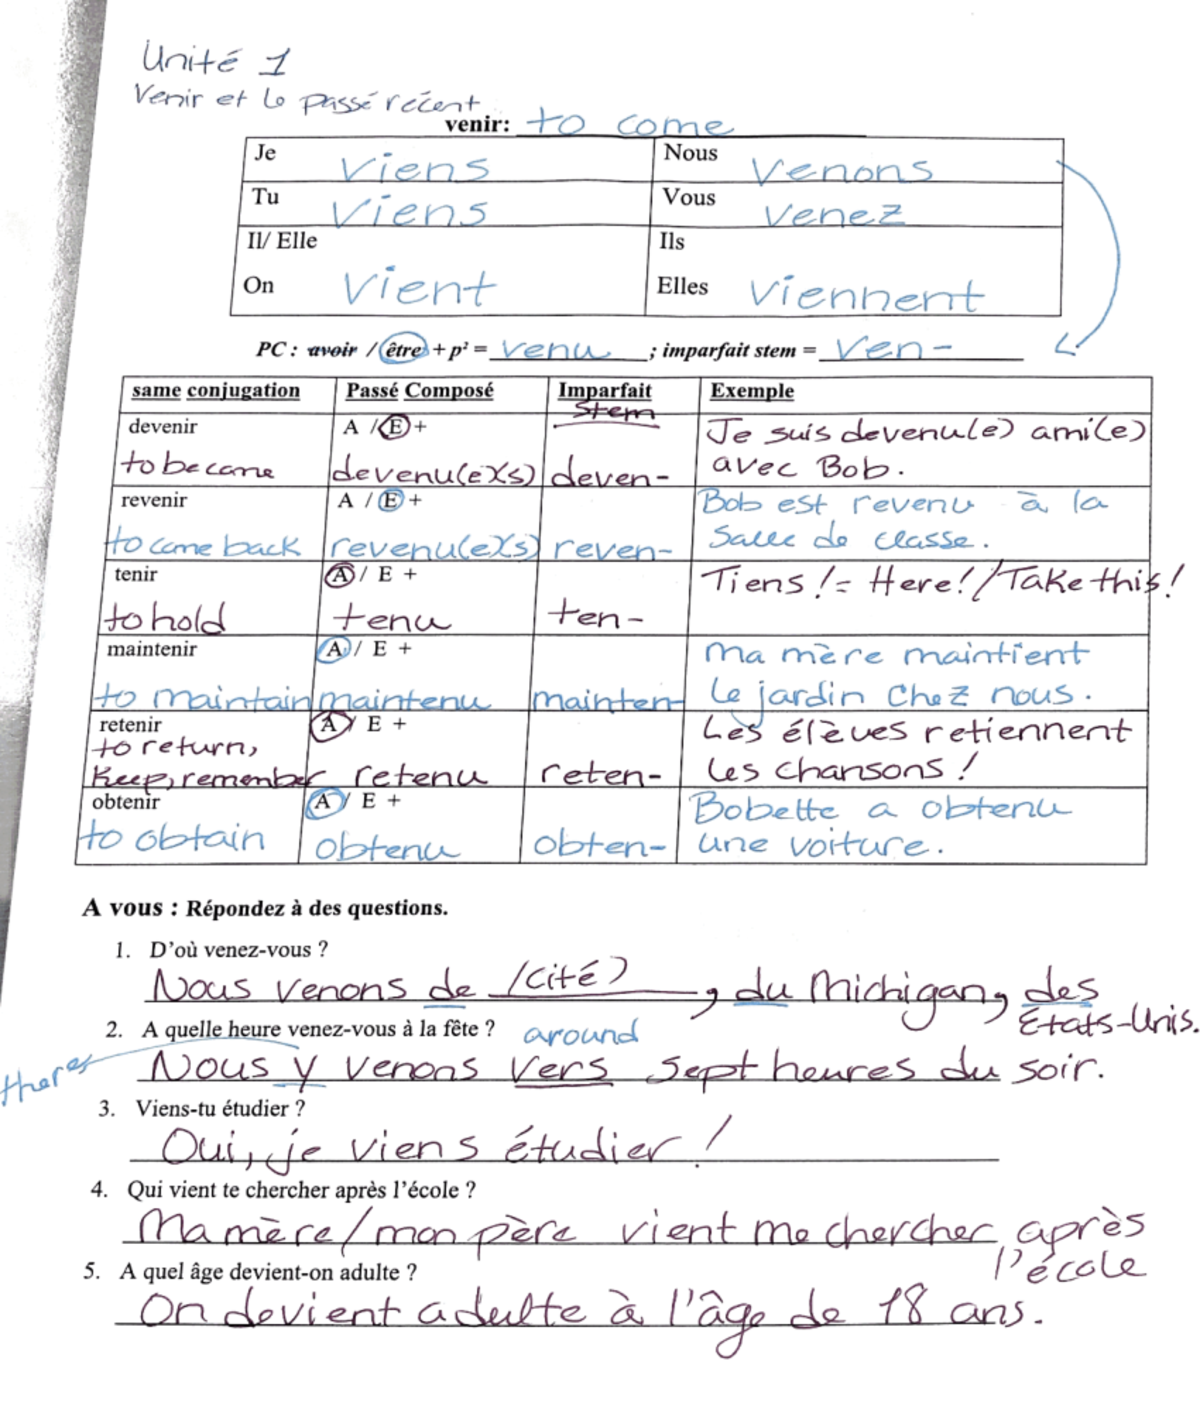 Unité 1
Venir et le passé récent
venir: to come
Je viens Nous venons
Tu viens Vous venez
Il/ Elle Ils
On vient Elles viennent
PC : avoir / être + p² = venu ; imparfait stem = ven-
same conjugation Passé Composé Imparfait Exemple
stem
devenir A / E + Je suis devenu(e) ami(e)
to become devenu(e)(s) deven- avec Bob.
revenir A / E + Bob est revenu à la
to come back revenu(e)(s) reven- salle de classe.
tenir A / E + Tiens ! = Here! / Take this!
to hold tenu ten-
maintenir A / E + Ma mère maintient
to maintain maintenu mainten- le jardin chez nous.
retenir A / E + Les élèves retiennent
to return,
keep, remember retenu reten- les chansons !
obtenir A / E + Bobette a obtenu
to obtain obtenu obten- une voiture.
A vous : Répondez à des questions.
1. D'où venez-vous ?
Nous venons de (cité) , du Michigan, des
États-Unis.
2. A quelle heure venez-vous à la fête ? around
there Nous y venons vers sept heures du soir.
3. Viens-tu étudier ?
Oui, je viens étudier !
4. Qui vient te chercher après l'école ?
Ma mère/mon père vient me chercher après
l'école
5. A quel âge devient-on adulte ?
On devient adulte à l'âge de 18 ans.